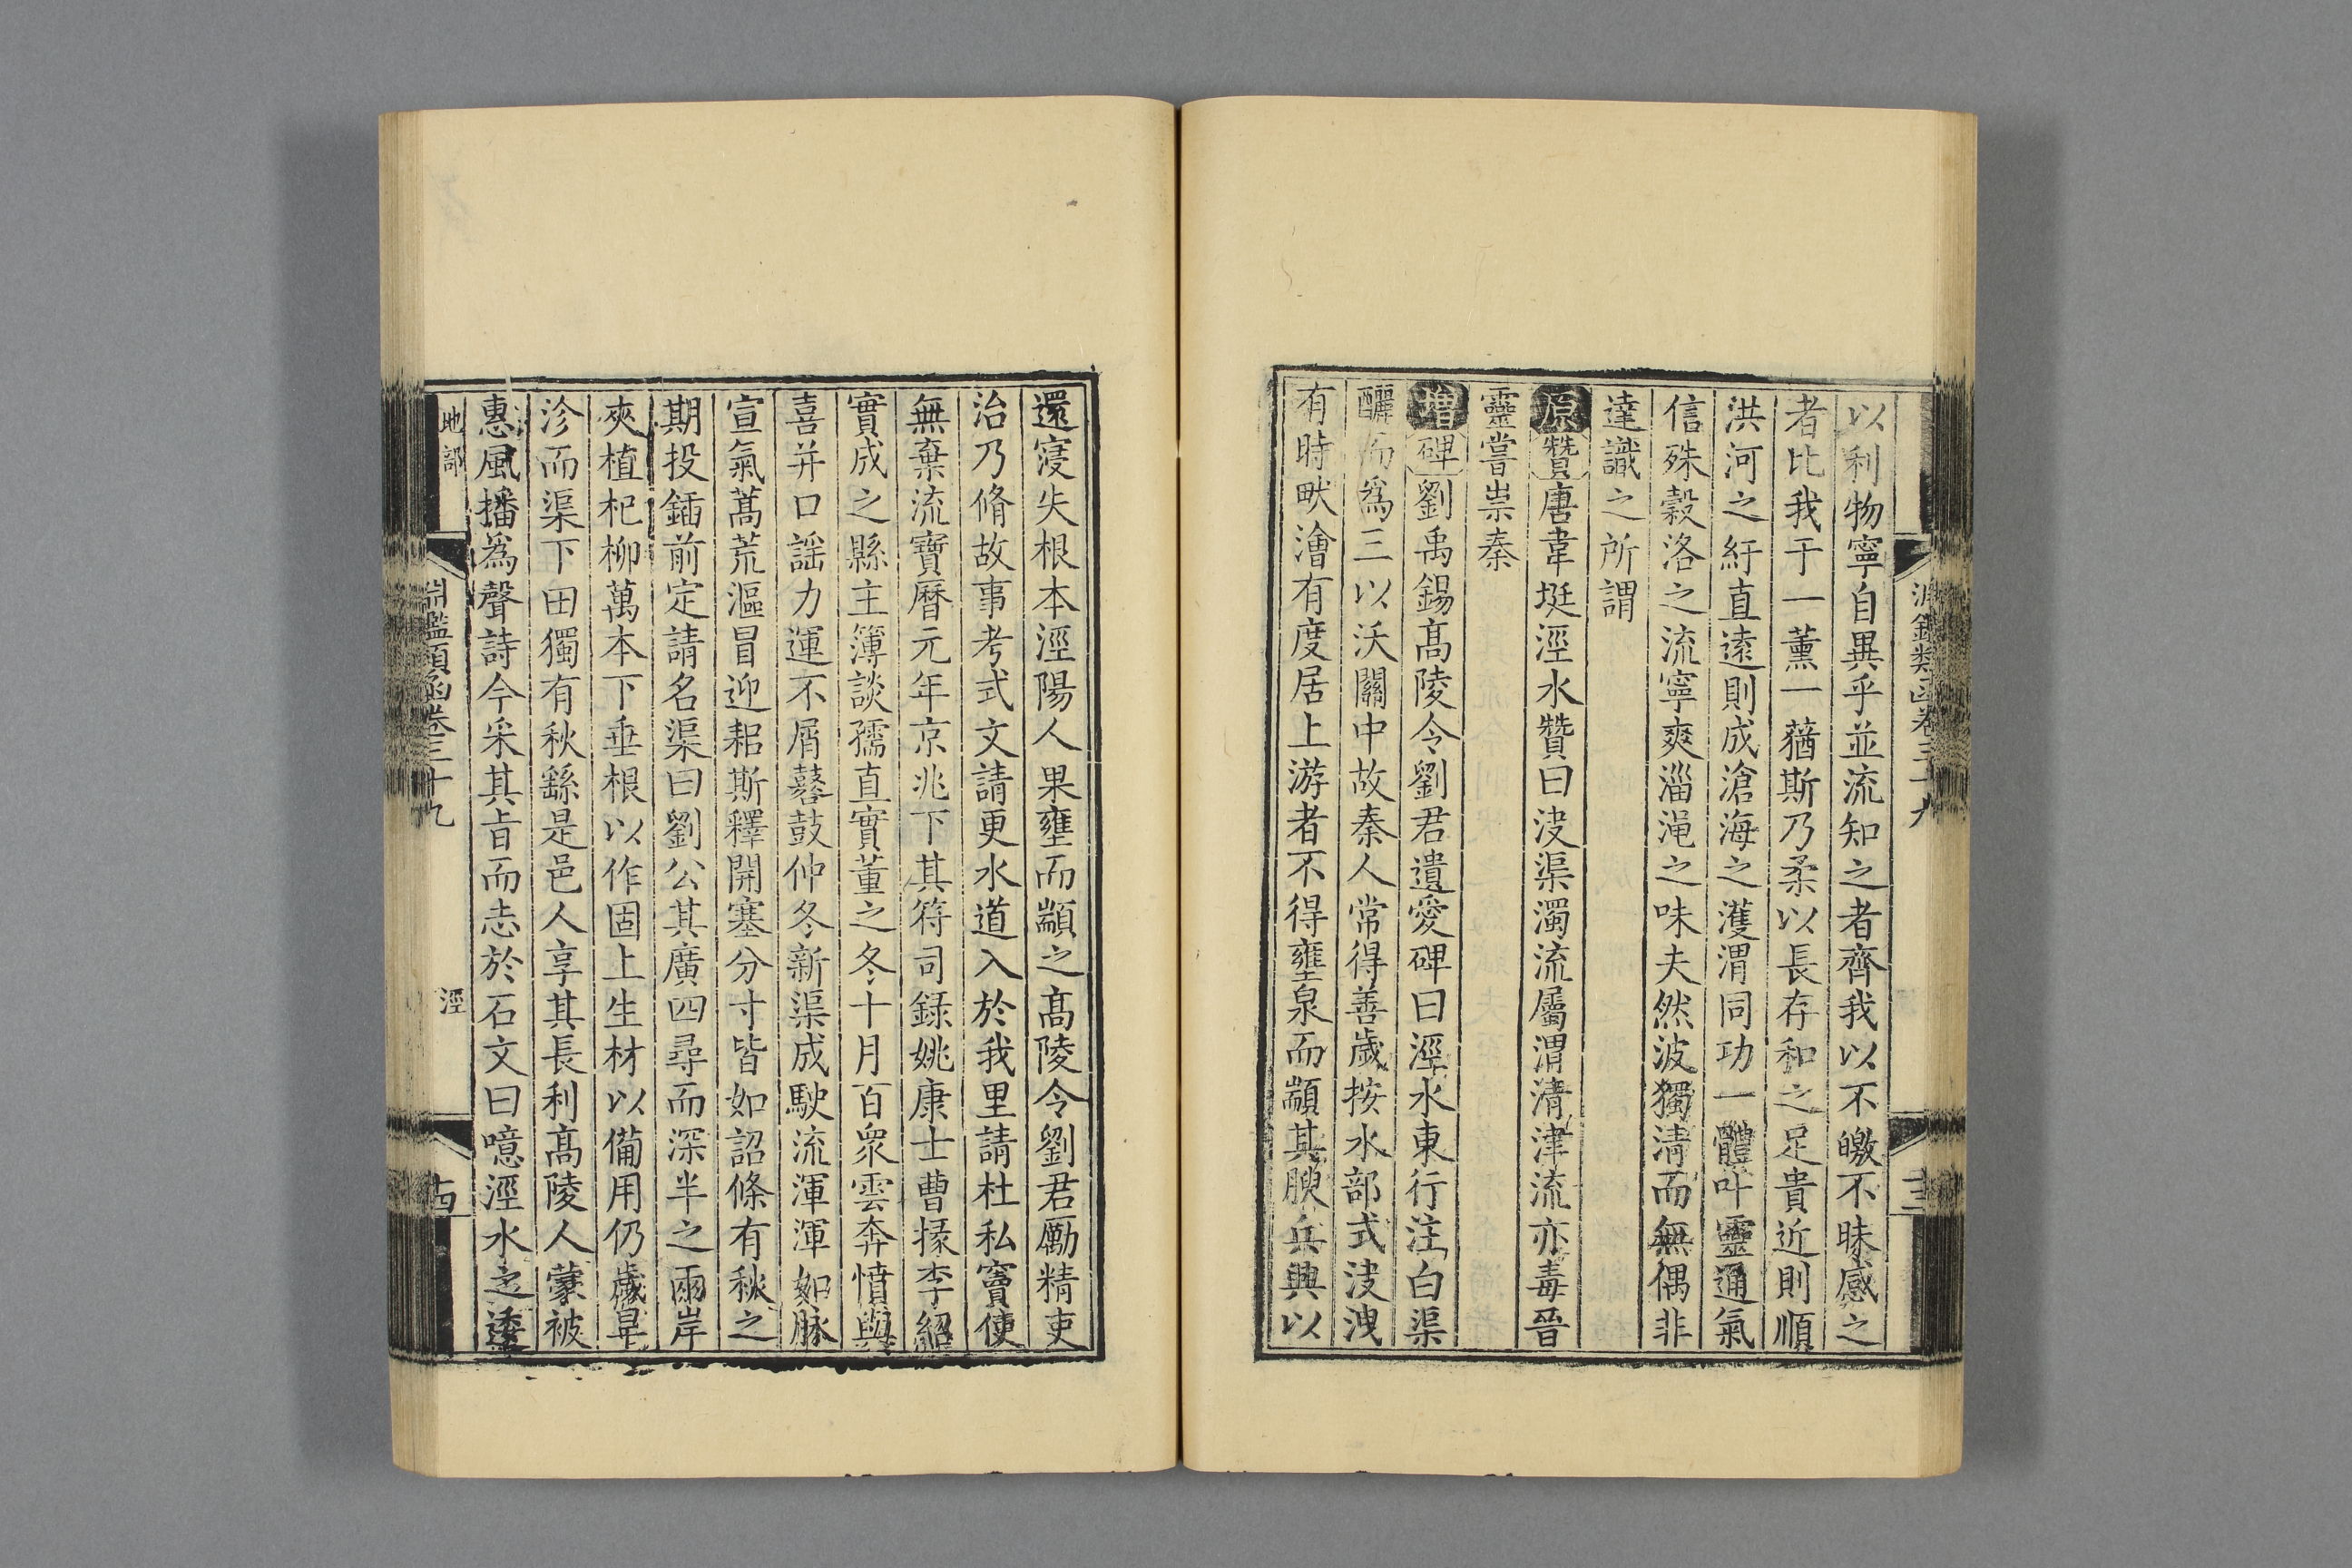 淵鑑類函卷三十九
十三
以利物寧自異乎並流知之者齊我以不皦不昧感之
者比我于一薰一蕕斯乃柔以長存和之足貴近則順
洪河之紆直遠則成滄海之濩渭同功一體叶靈通氣
信殊穀洛之流寧爽淄渑之味夫然波獨清而無偶非
達識之所謂
原贊唐韋挺涇水贊曰㳇渠濁流屬渭清津流亦毒晉
靈嘗祟秦
增碑劉禹錫髙陵令劉君遺愛碑曰涇水東行注白渠
釃而爲三以沃關中故秦人常得善歲按水部式㳇洩
有時畎澮有度居上游者不得壅泉而顓其腴兵興以
還寖失根本涇陽人果壅而顓之髙陵令劉君勵精吏
治乃脩故事考式文請更水道入於我里請杜私竇使
無棄流寶曆元年京兆下其符司録姚康士曹掾李紹
實成之縣主簿談孺直實董之冬十月百衆雲奔憤與
喜并口謡力運不屑鼛鼓仲冬新渠成駛流渾渾如脉
宣氣蒿荒漚冒迎耜斯釋開塞分寸皆如詔條有秋之
期投鍤前定請名渠曰劉公其廣四尋而深半之兩岸
夾植杞柳萬本下垂根以作固上生材以備用仍歲旱
沴而渠下田獨有秋繇是邑人享其長利髙陵人蒙被
惠風播爲聲詩今采其㫖而志於石文曰噫涇水之逶
地部
淵鑑類函卷三十九
涇
十四